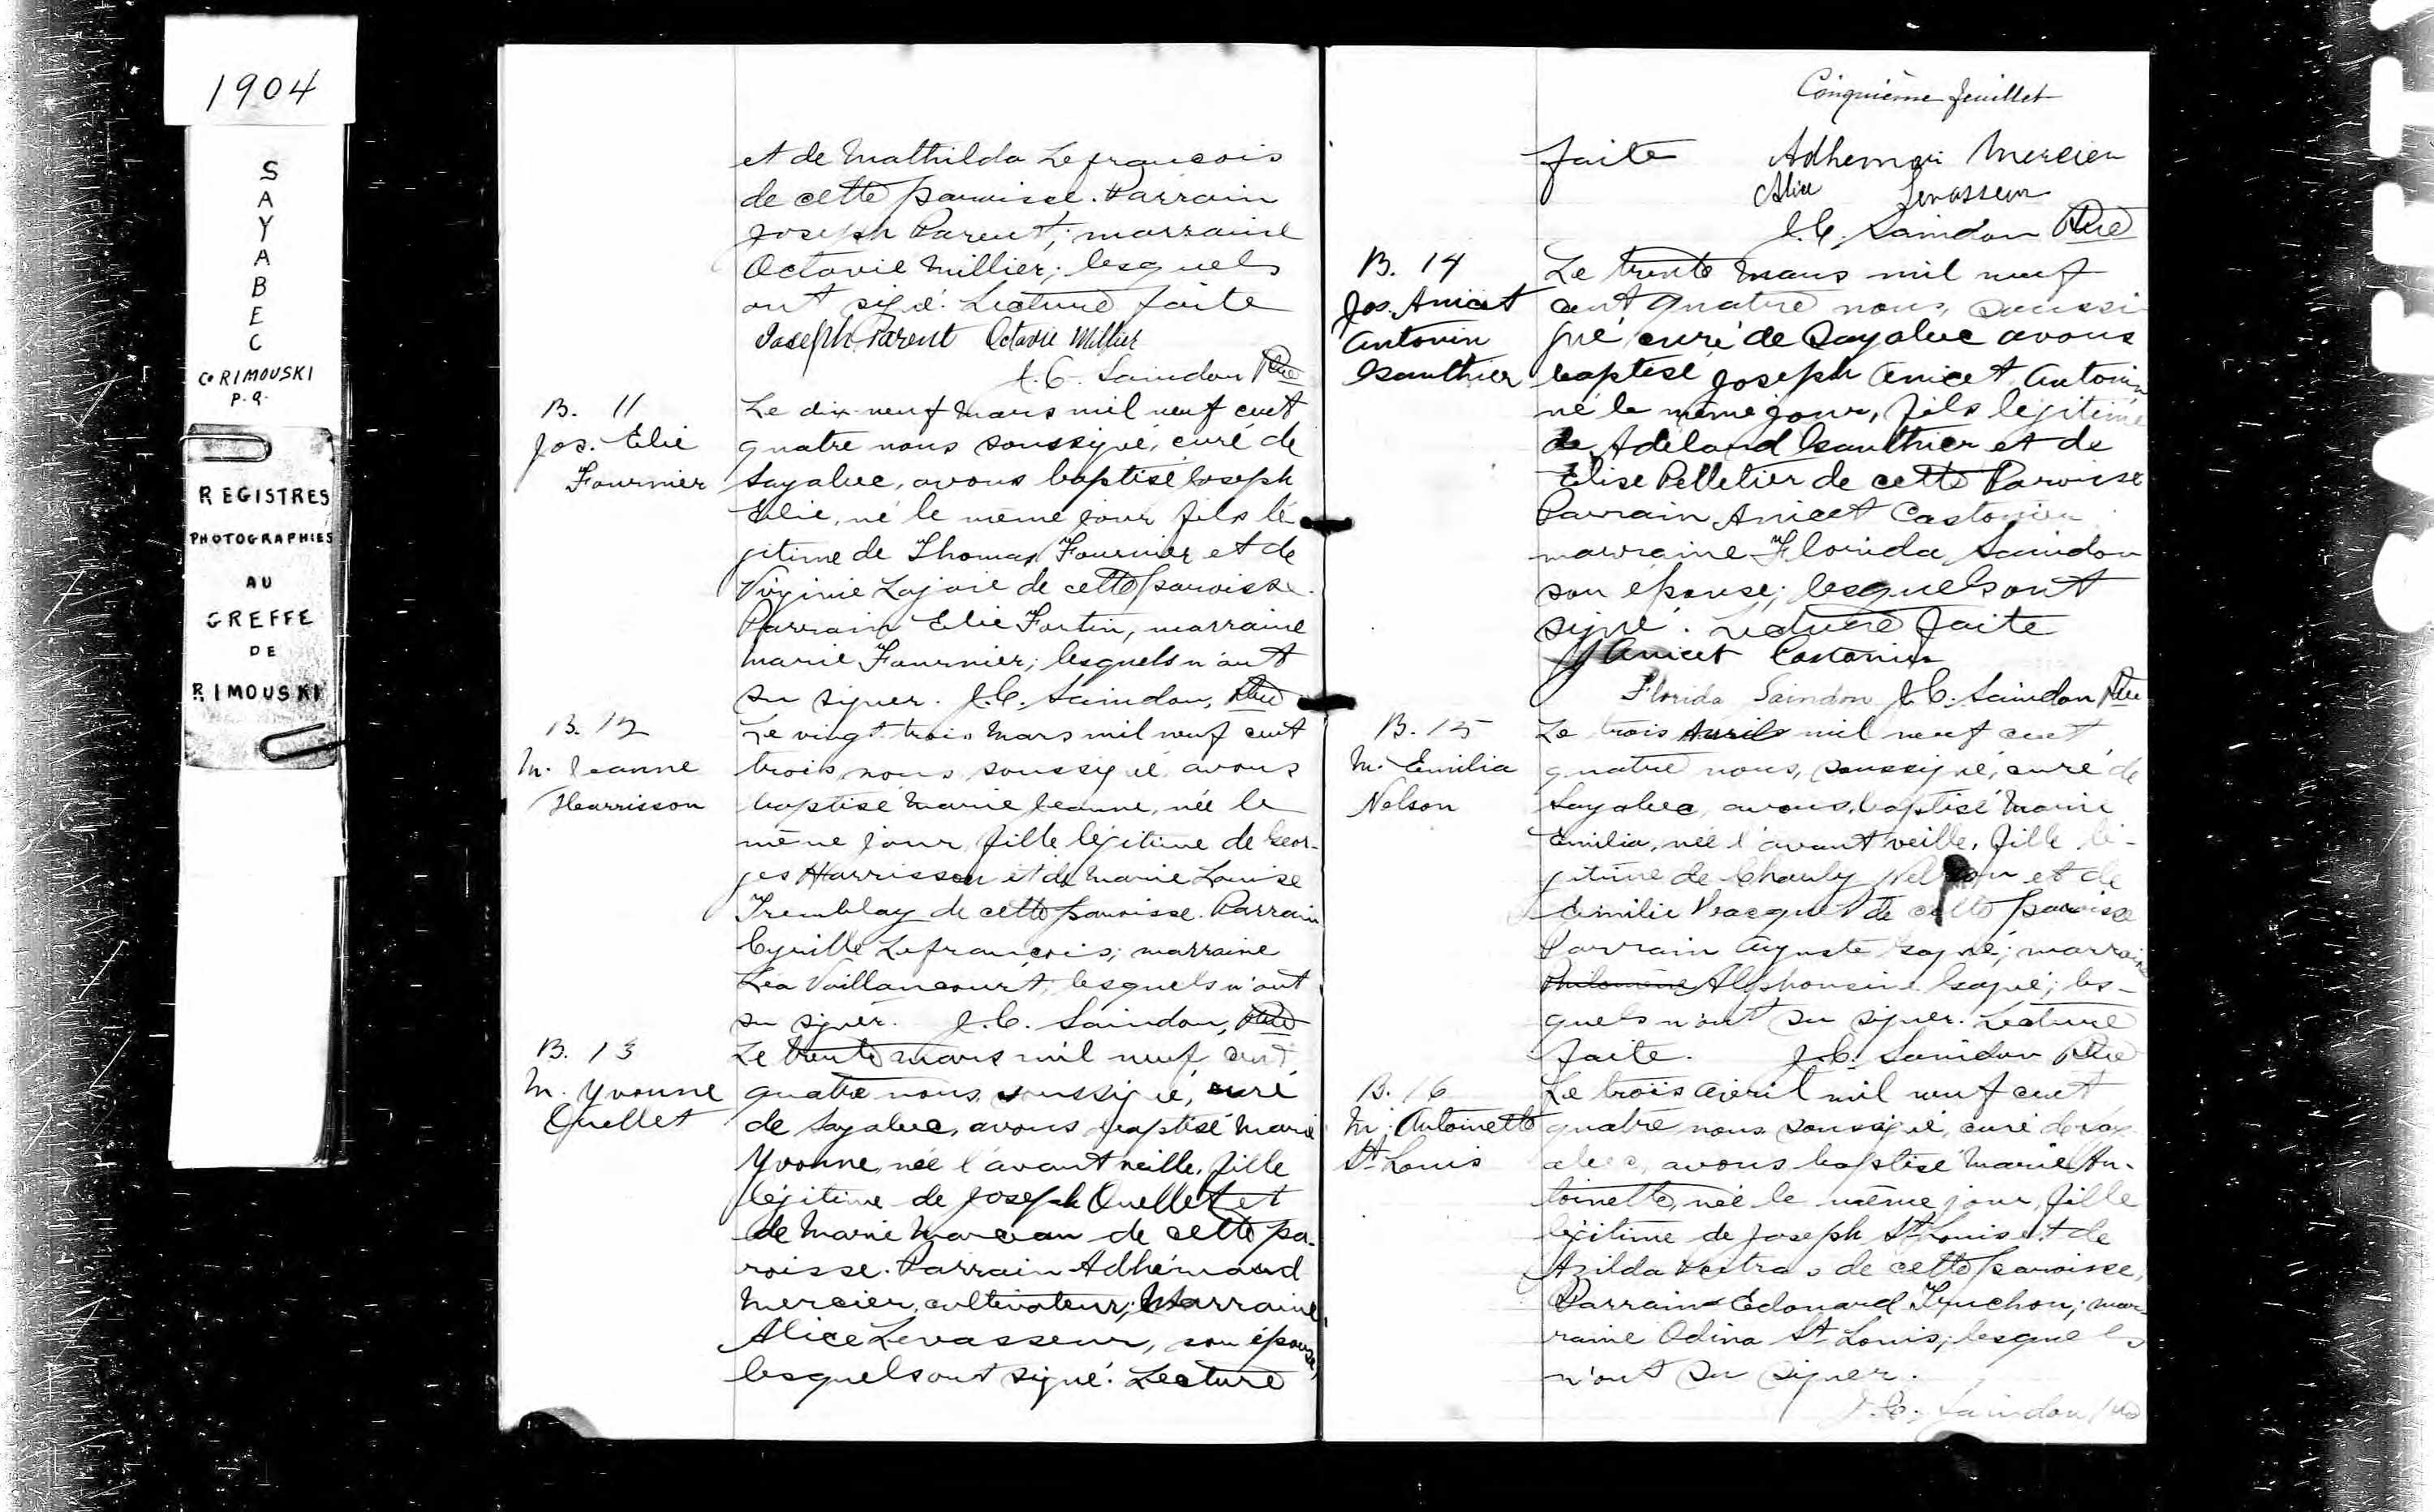 1904
SAYABEC
Co RIMOUSKI
P.Q.
REGISTRES
PHOTOGRAPHIÉS
AU
GREFFE
DE
RIMOUSKI
et de Mathilda Lefrancois
de cette paroisse. Parrain
Joseph Parent, marraine
Octavie Millier; lesquels
ont signé. Lecture faite
Joseph Parent Octavie Millier
J. C. Saindon Ptre
B. 11
Jos. Elie
Fournier
Le dix-neuf Mars mil neuf cent
quatre nous soussigné, curé de
Sayabec, avons baptisé Joseph
Elie, né le même jour fils lé-
gitime de Thomas Fournier et de
Virginie Lajoie de cette paroisse.
Parrain Elie Fortin, marraine
Marie Fournier; lesquels n'ont
su signer. J. C. Saindon, Ptre
B. 12
M. Jeanne
Harrisson
Le vingt trois Mars mil neuf cent
trois, nous soussigné avons
baptisé Marie Jeanne, née le
même jour, fille légitime de Geor-
ges Harrisson et de Marie Louise
Tremblay de cette paroisse. Parrain
Cyrille Lefrançois; marraine
Léa Vaillancourt; lesquels n'ont
su signer. J. C. Saindon, Ptre
B. 13
M. Yvonne
Ouellet
Le trente mars mil neuf cent
quatre nous, soussigné, curé
de Sayabec, avons baptisé Marie
Yvonne, née l'avant veille, fille
légitime de Joseph Ouellet et
de Marie Marceau de cette pa-
roisse. Parrain Adhémard
Mercier, cultivateur; Marraine
Alice Levasseur, son épouse,
lesquels ont signé. Lecture
Cinquième feuillet
faite Adhemar Mercier
Alice Levasseur
J. C. Saindon Ptre
B. 14
Jos. Anicet
Antonin
Gauthier
Le trente Mars mil neuf
cent quatre nous, soussi
gné curé de Sayabec avons
baptisé Joseph Anicet Antonin
né le même jour, fils légitime
de Adelard Gauthier et de
Elise Pelletier de cette Paroisse
Parrain Anicet Castonier
marraine Florida Saindon
son epouse; lesquels ont
signé. Lecture faite
Anicet Castonier
Florida Saindon J. C. Saindon Ptre
B. 15
M. Emilia
Nelson
Le trois Avril mil neuf cent
quatre nous, soussigné, curé de
Sayabec, avons baptisé Marie
Emilia, née l'avant veille, fille lé-
gitime de Charly Nelson et de
Emilie de cette paroisse
Parrain Auguste Gagné; marraine
Philomène Alphonsine Gagné; les-
quels n'ont su signer. Lecture
faite. J. C. Saindon Ptre
B. 16
M. Antoinette
St Louis
Le trois Avril mil neuf cent
quatre, nous soussigné, curé de Say
abec, avons baptisé Marie An-
toinette, née le même jour, fille
légitime de Joseph St Louis et de
Azilda de cette paroisse,
Parrain Edouard Truchon; mar-
raine Odina St Louis; lesquels
n'ont su signer.
J. C. Saindon Ptre